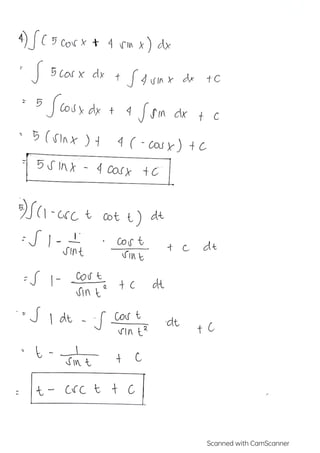 4) ∫ ( 5 cos x + 4 sin x ) dx
= ∫ 5 cos x dx + ∫ 4 sin x dx + C
= 5 ∫ cos x dx + 4 ∫ sin dx + C
= 5 ( sin x ) + 4 ( - cos x ) + C
= 5 sin x - 4 cos x + C
5) ∫ ( 1 - csc t cot t ) dt
= ∫ 1 - 1/sin t · cos t/sin t + c dt
= ∫ 1 - cos t/sin t² + c dt
= ∫ 1 dt - ∫ cos t/sin t² dt + C
= t - 1/sin t + C
= t - csc t + C
Scanned with CamScanner